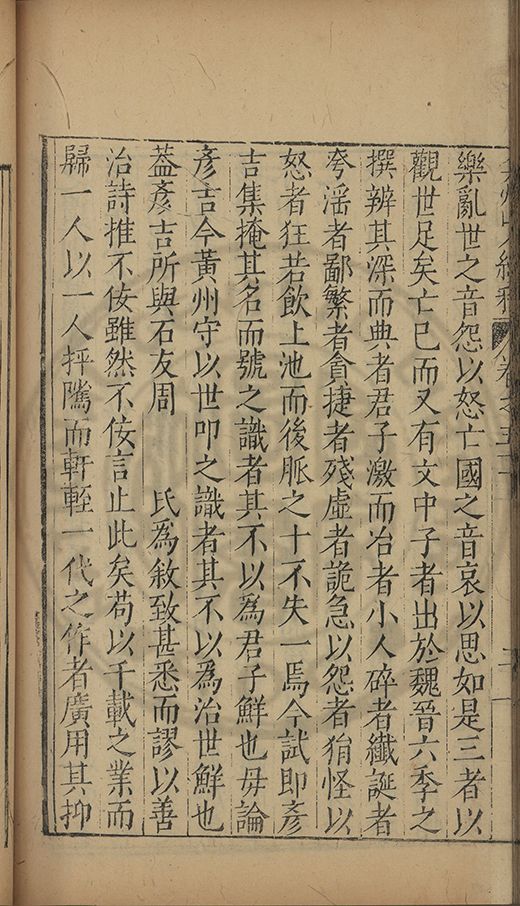 樂亂世之音怨以怒亡國之音哀以思如是三者以
觀世足矣亡已而又有文中子者出於魏晉六季之
撰辨其深而典者君子激而冶者小人碎者纖誕者
夸淫者鄙繁者貪捷者殘虛者詭急以怨者狷怪以
怒者狂若飲上池而後脈之十不失一焉今試即彥
吉集掩其名而號之識者其不以為君子鮮也毋論
彥吉今黃州守以世叩之識者其不以為治世鮮也
葢彥吉所與石友周　氏為敘致甚悉而謬以善
治詩推不佞雖然不佞言止此矣苟以千載之業而
歸一人以一人抨隲而軒輊一代之作者廣用其抑